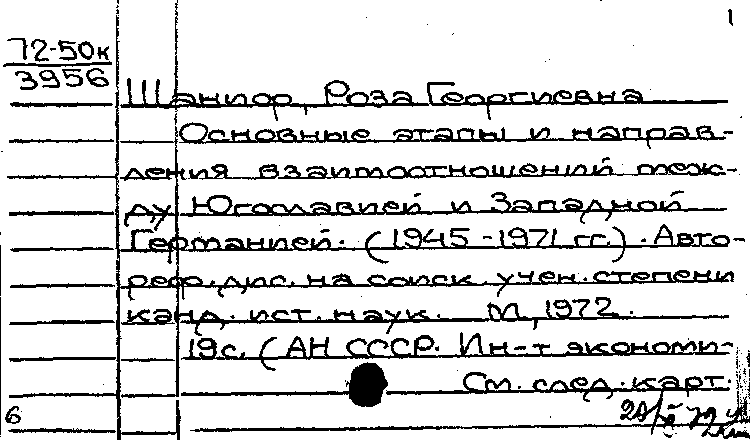 1
72-50к
3956
Шанпор, Роза Георгиевна
Основные этапы и направ-
ления взаимоотношений меж-
ду Югославией и Западной
Германией. (1945-1971 гг.). Авто-
реф. дис. на соиск. учен. степени
канд. ист. наук. М., 1972.
19с. (АН СССР. Ин-т экономи-
См. след. карт.
6